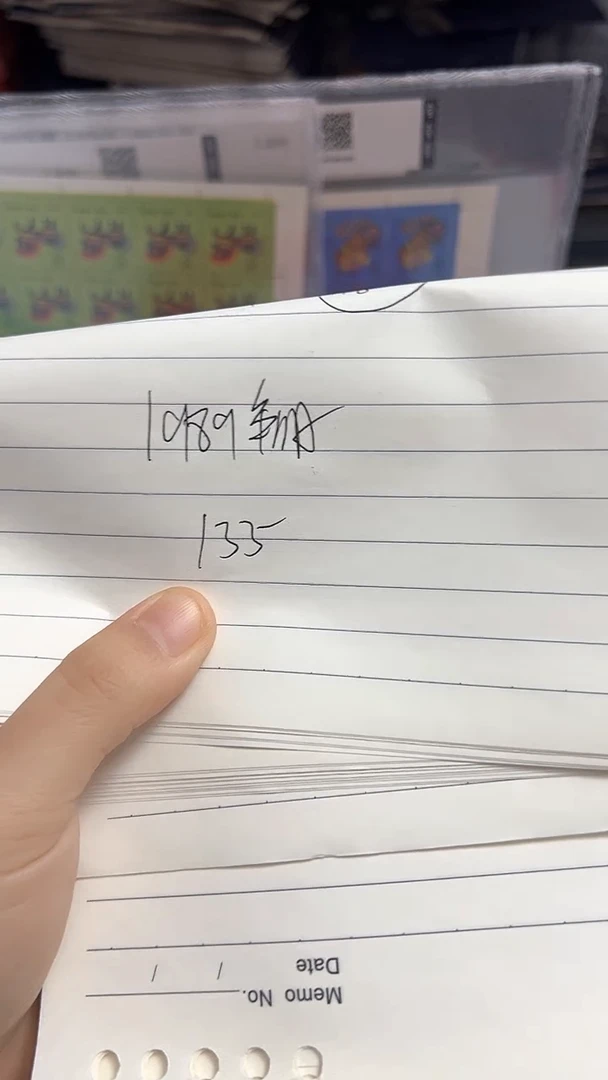 1989年册
135
Memo No.
Date / /